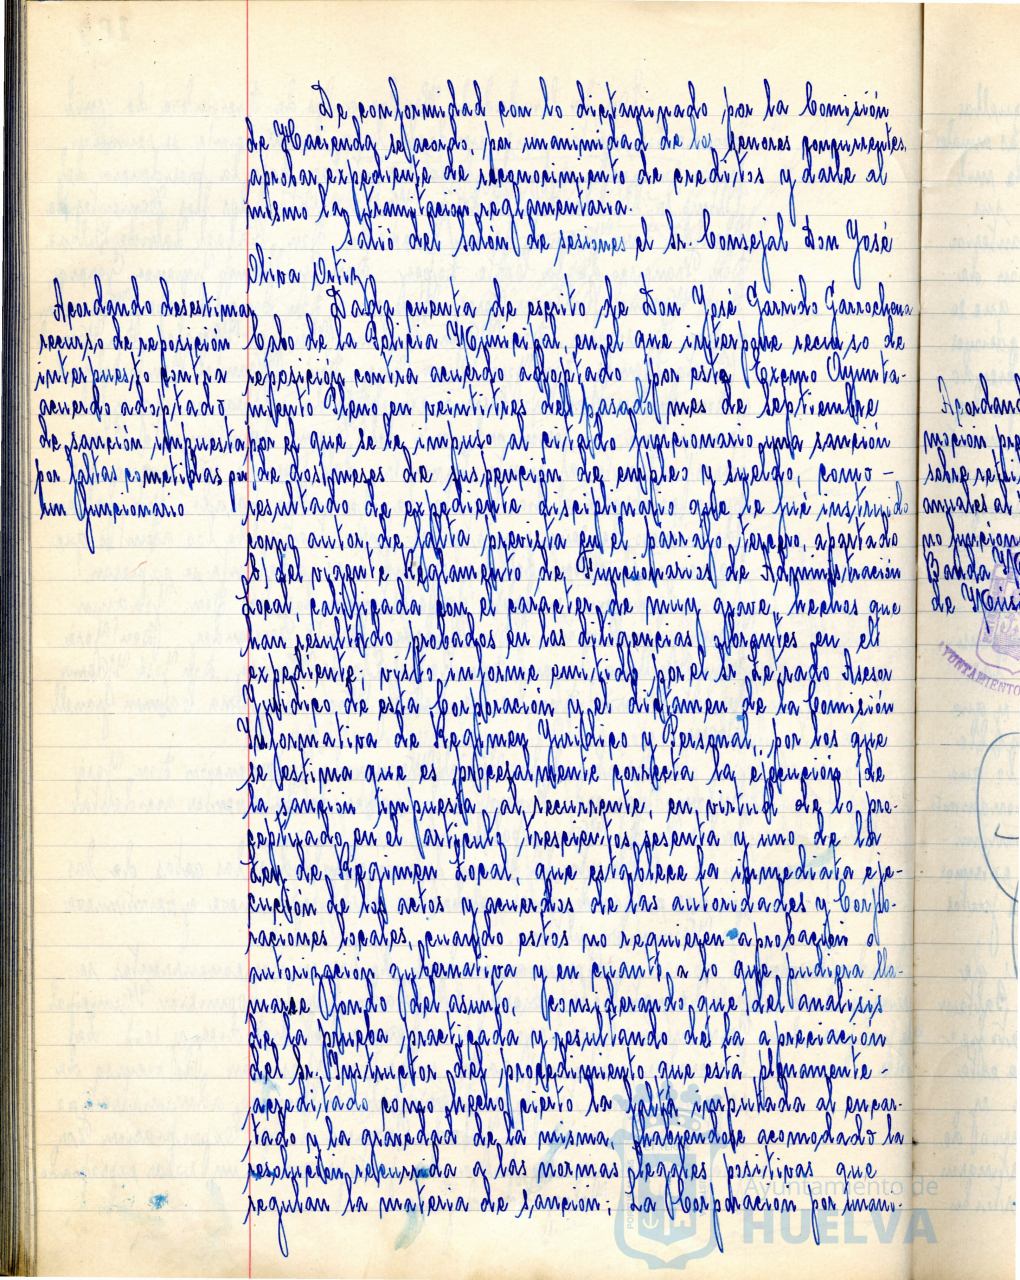 De conformidad con lo dictaminado por la Comisión
de Hacienda se acordo, por unanimidad de los señores concurrentes,
aprobar expediente de reconocimiento de creditos y darle al
mismo la tramitación reglamentaria.
Salió del Salón de sesiones el Sr. Consejal Don José
Oliva Ortiz
Acordando desestimar
recurso de reposición
interpuesto contra
acuerdo adoptado
de sanción impuesta
por faltas cometidas por
un funcionario
Dada cuenta de escrito de Don José Garrido Garrochena
Cabo de la Policia Municipal, en el que interpone recurso de
reposición contra acuerdo adoptado por este Excmo Ayunta-
miento Pleno en veintitres del pasado mes de Septiembre
por el que se le impuso al citado funcionario una sanción
de dos meses de suspención de empleo y sueldo, como -
resultado de expediente disciplinario que le fué instruido
como autor de falta prevista en el parrafo tercero, apartado
b) del vigente Reglamento de Funcionarios de Administración
Local, calificada con el carácter de muy grave, hechos que
han resultado probados en las diligencias obrantes en el
expediente; visto informe emitido por el sr. Letrado Asesor
Juridico de esta Corporación y el dictamen de la Comisión
Informativa de Regimen Juridico y Personal, por los que
se estima que es procesalmente correcta la ejecución de
la sanción impuesta al recurrente, en virtud de lo pre-
ceptuado en el articulo trescientos sesenta y uno de la
Ley de Regimen Local, que establece la inmediata eje-
cución de los actos y acuerdos de las autoridades y Corpo-
raciones locales, cuando estos no requieren aprobación o
autorización gubernativa y en cuanto a lo que pudiera lla-
marse fondo del asunto, considerando que del analisis
de la prueba practicada y resultando de la apreciación
del sr. Instructor del procedimiento que está plenamente
acreditado como hecho cierto la falta imputada al encar-
tado y la gravedad de la misma, habiendose acomodado la
resolución recurrida a las normas legales positivas que
regulan la materia de sanción; La Corporación por unani-
Acordando
moción pre
sobre
anuales al
no funcion
Banda
de
AYUNTAMIENTO
Ayuntamiento de
HUELVA